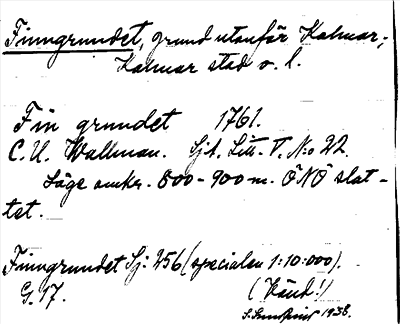 Finngrundet, grund utanför Kalmar;
Kalmar stad o. l.
Fin grundet 1761.
C. U. Wallman. Sjk. Litt. T. N:o 22.
Läge omkr. 800-900 m. ÖNÖ slot-
tet.
Finngrundet Sj: 256 (specialen 1:10:000).
G. 17. (Vänd!)
1938.